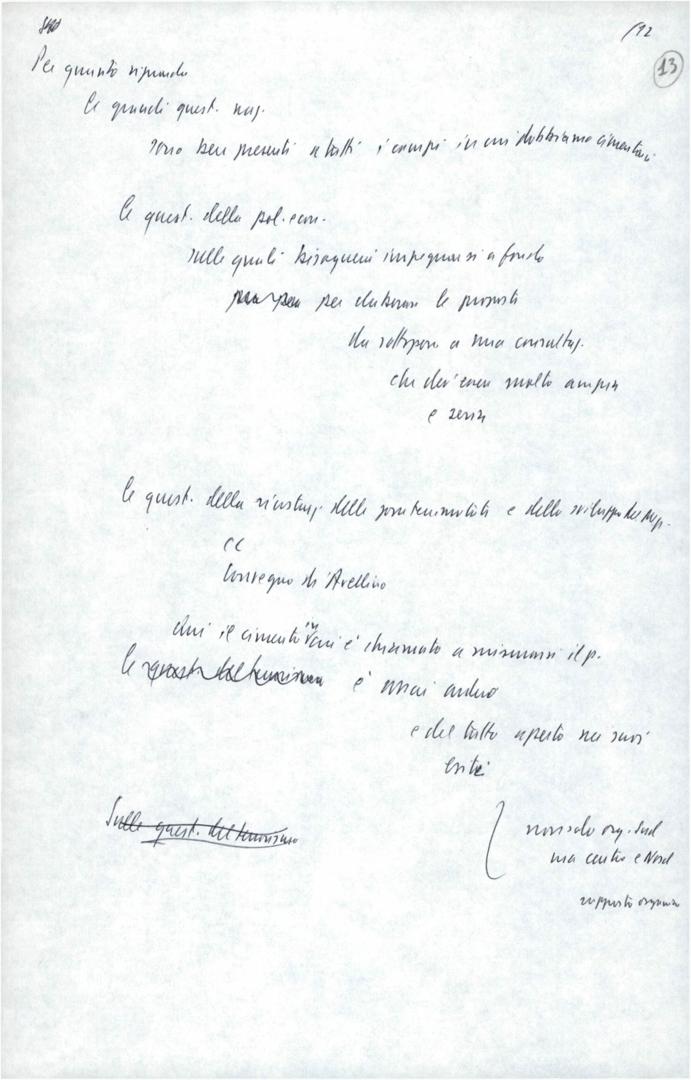 /92
13
Per quanto riguarda
le grandi quest. naz.
sono ben presenti a tutti i campi in cui dobbiamo cimentarci
le quest. della pol. econ.
sulle quali bisognerà impegnarsi a fondo
per elaborare le proposte
da sottoporre a una consultaz.
che dev'essere molto ampia
e seria
le quest. della delle zone terremotate e dello sviluppo del Mezz.
Convegno di Avellino
Qui il cimento in cui è chiamato a misurarsi il p.
è assai arduo
e del tutto aperto nei suoi
esiti
Sulle quest. del terrorismo
non solo org. Sud
ma centro e Nord
rapporto